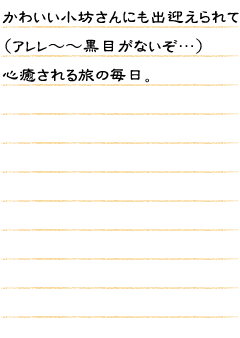 かわいい小坊さんにも出迎えられて
（アレレ～～黒目がないぞ…）
心癒される旅の毎日。